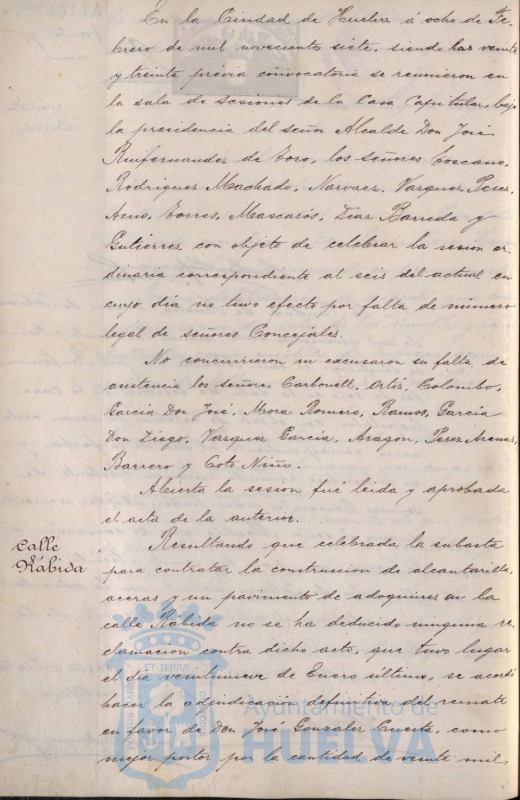 En la Ciudad de Huelva á ocho de Fe
brero de mil novecientos siete, siendo las veinte
y treinta previa convocatoria se reunieron en
la sala de sesiones de la Casa Capitular, bajo
la presidencia del señor Alcalde Don José
Ruifernandez de Toro, los señores Toscano,
Rodriguez Machado, Narvaez, Vazquez Perez,
Torres, Mascarós, Diaz Barreda y
Gutierrez con objeto de celebrar la sesion or
dinaria correspondiente al seis del actual en
cuyo dia no tuvo efecto por falta de número
legal de señores Concejales.
No concurrieron ni excusaron su falta de
asistencia los señores Carbonell, Ortiz, Colombo,
Garcia Don José, Mora Romero, Ramos, Garcia
Don Diego, Vazquez Garcia, Aragon, Perez Arenas,
Barrero y Coto Niño.
Abierta la sesion fué leida y aprobada
el acta de la anterior.
Calle
Rábida
Resultando que celebrada la subasta
para contratar la construccion de alcantarilla,
aceras y un pavimento de adoquines en la
calle Rábida no se ha deducido ninguna re
clamacion contra dicho acto, que tuvo lugar
el dia veintinueve de Enero último, se acordó
hacer la adjudicacion definitiva del remate
en favor de Don José Gonzalez Cuesta, como
mejor postor por la cantidad de veinte mil
Ayuntamiento de
HUELVA